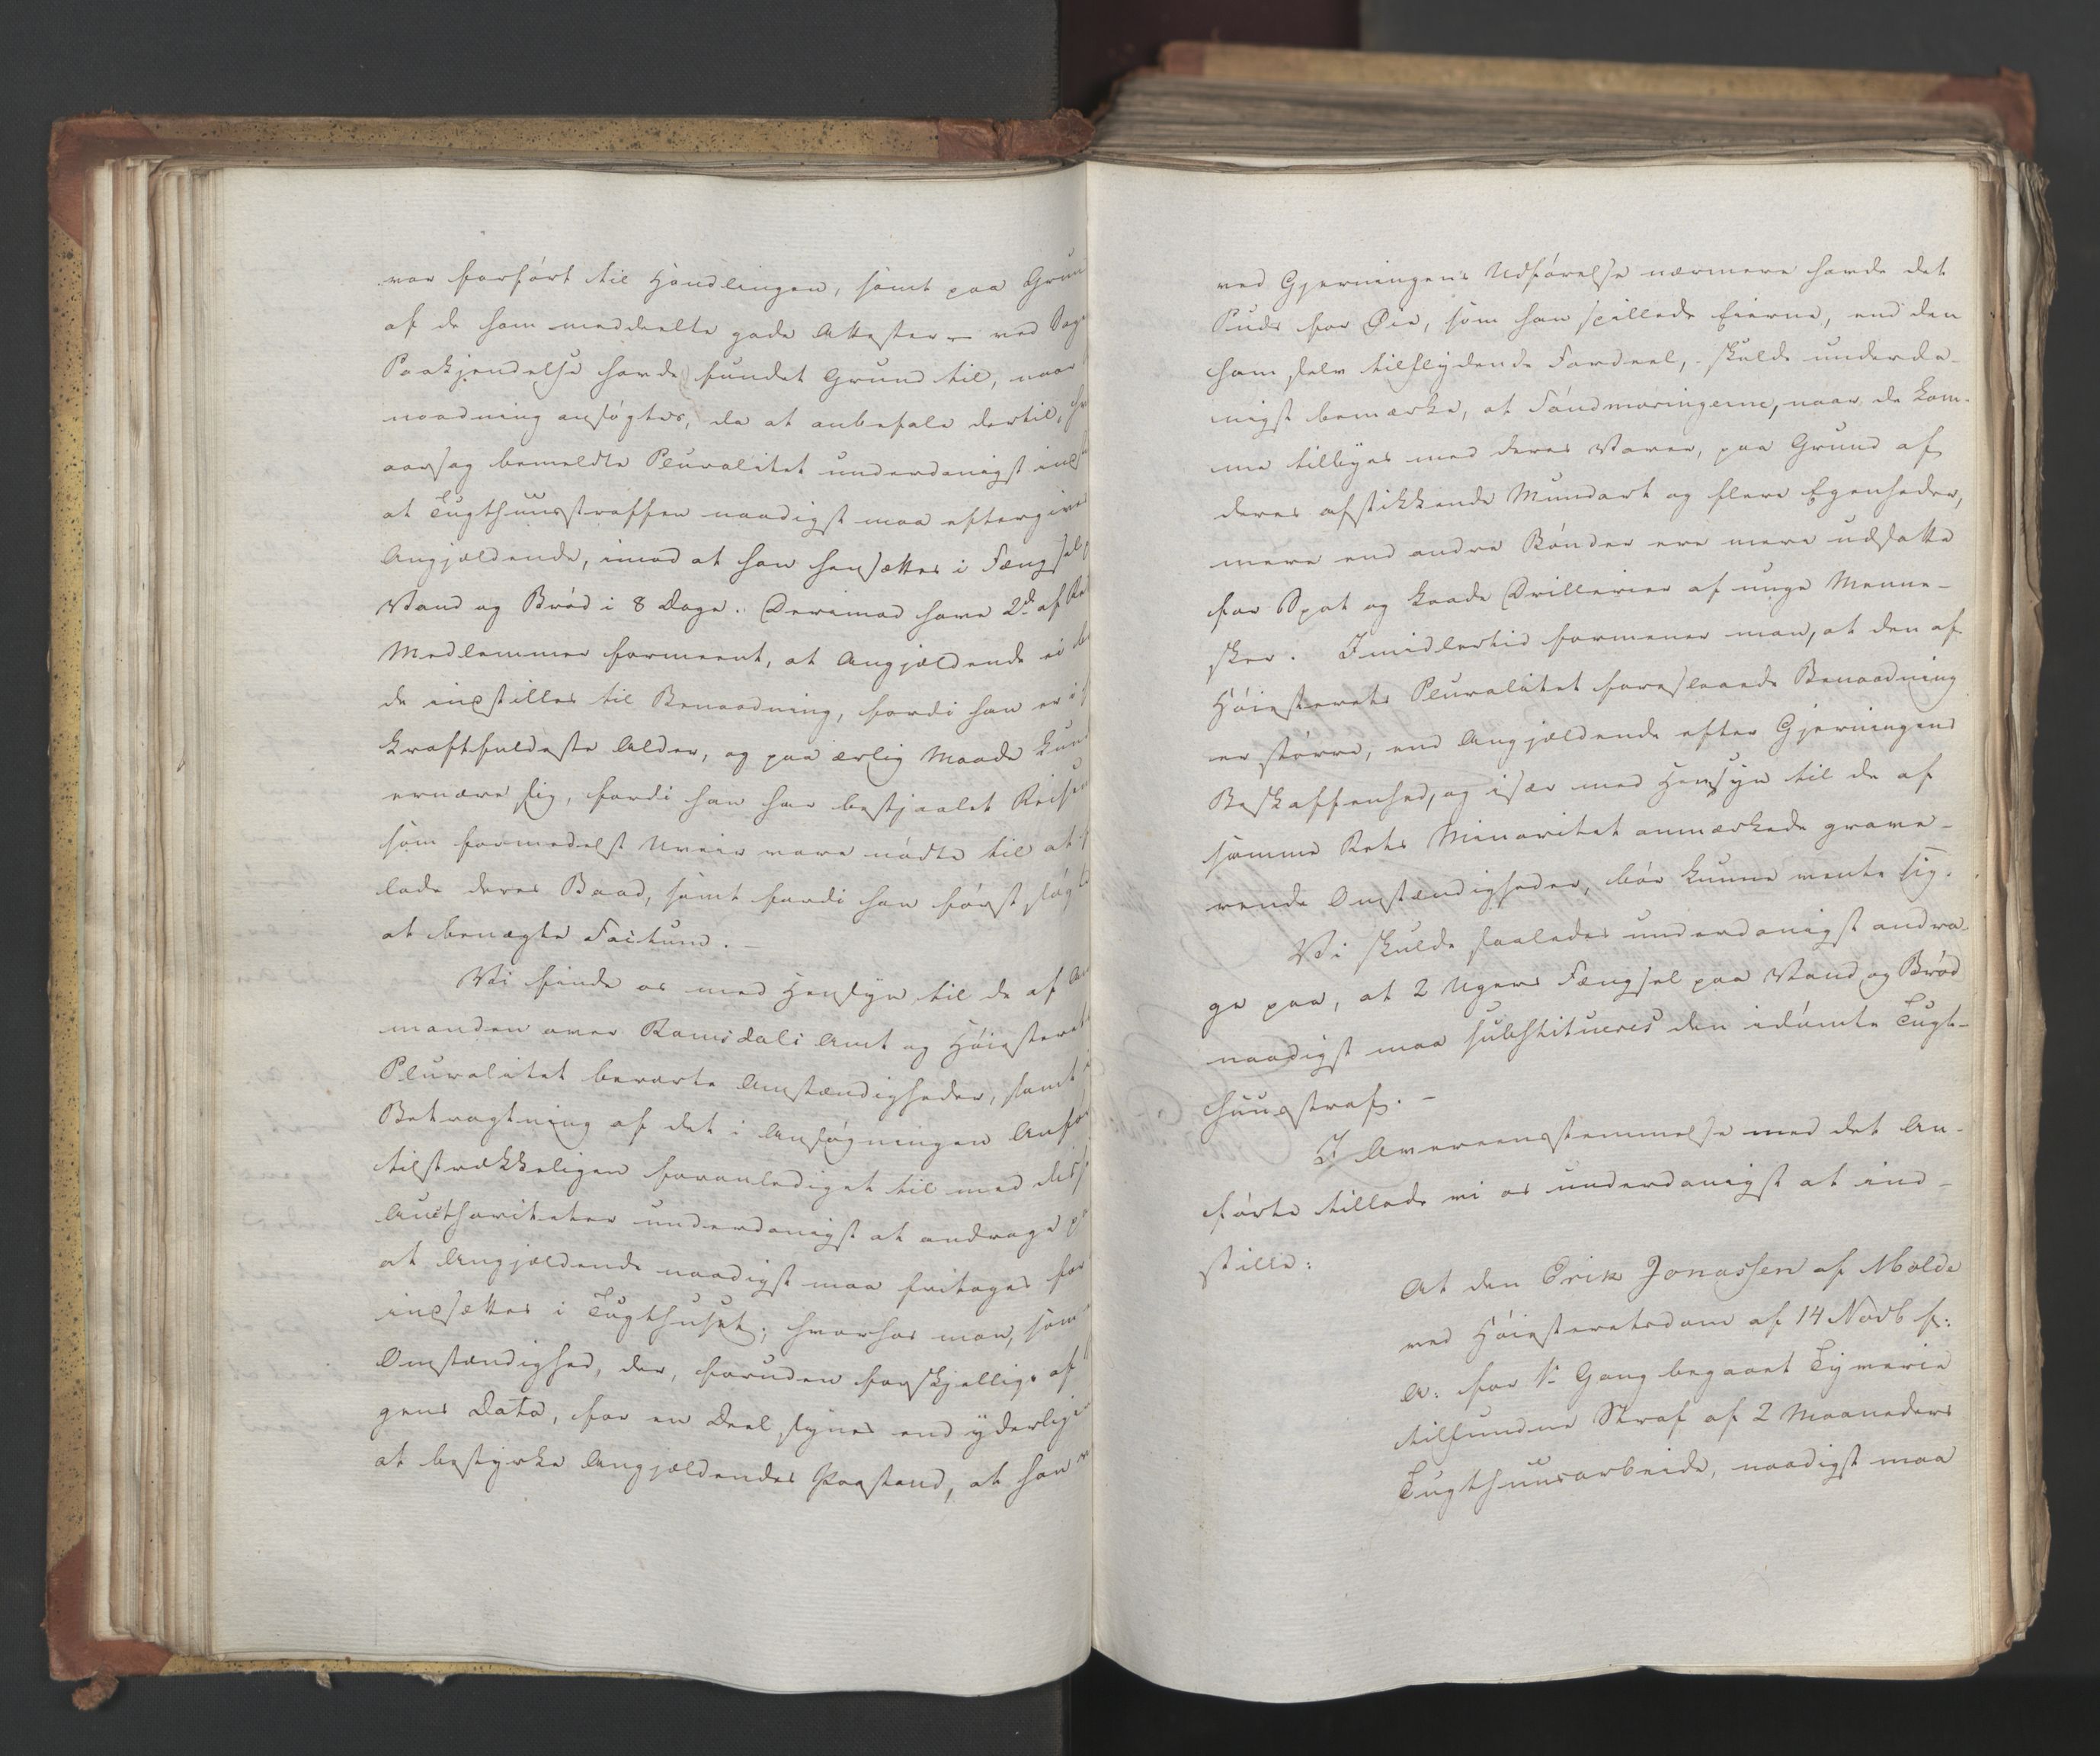 var forført til Handlingen, samt paa Grun
af de ham meddeelte gode Attester – ved Sage
Paakjendelse havde fundet Grund til, naar
naadning ansøgtes, da at anbefale dertil,
aarsag bemeldte Pluralitet underdanigst
at Tugthuusstraffen naadigst maa eftergives
Angjældende, imod at han hensættes i Fængsel
Vand og Brød i 8 Dage. Derimod have 2de af
Medlemmer formeent, at Angjældende ei
de indstilles til Benaadning, fordi han er i
kraftfuldeste Alder, og paa ærlig Maade kund
ernære sig, fordi han har bestjaalet Reisen
som formedelst Uveir vare nødte til at
lade deres Baad, samt fordi han først søgte
at benægte Factum. –
Vi finde os med Hensyn til de af
manden over Romsdals Amt og Høiesteret
Pluralitet berørte Omstændigheder, samt
Betragtning af det i Ansøgningen Anfør
tilstrækkeligen foranlediget til med diss
Aucthoriteter underdanigst at andrage p
at Angjældende naadigst maa fritages for
indsættes i Tugthuset; hvorhos man, som
Omstændighed, der, foruden forskjellige af
gens Data, for en Deel synes end yderlige
at bestyrke Angjældendes Paastand, at han
ved Gjerningens Udførelse nærmere havde det
Puds for Øie, som han spillede Eierne, end den
ham selv tilflydende Fordeel, – skulde underda-
nigst bemærke, at Søndmøringerne, naar de kom-
me tilbyes med deres Varer, paa Grund af
deres afstikkende Mundart og flere Egenheder,
mere end andre Bønder ere mere udsatte
for Spot og kaade Drillerier af unge Menne-
sker. Imidlertid formener man, at den af
Høiesterets Pluralitet foreslaaede Benaadning
er større, end Angjældende efter Gjerningens
Beskaffenhed, og især med Hensyn til de af
samme Rets Minoritet anmærkede grave-
rende Omstændigheder, bør kunne vente sig.
Vi skulde saaledes underdanigst andra-
ge paa, at 2 Ugers Fængsel paa Vand og Brød
naadigst maa substitueres den idømte Tugt-
huusstraf. –
I Overeensstemmelse med det An-
førte tillade vi os underdanigst at ind-
stille:
At den Erik Jonassen af Molde
ved Høiesteretsdom af 14 Novb f:
A: for 1ste Gang begaaet Tyverie
tilfundne Straf af 2 Maaneders
Tugthuusarbeide, naadigst maa